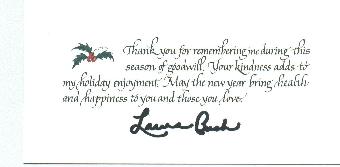 Thank you for remembering me during this
season of goodwill. Your kindness adds to
my holiday enjoyment. May the new year bring health
and happiness to you and those you love.
Laura Bush